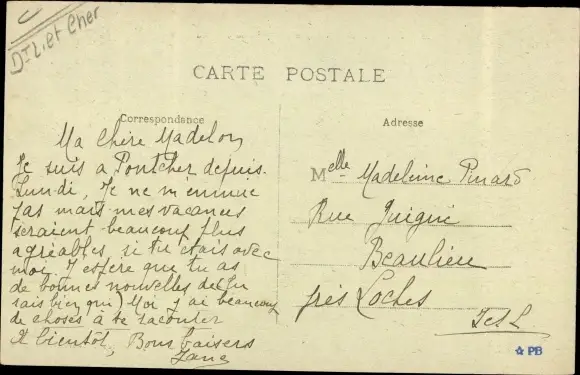 Dt L. et Cher
CARTE POSTALE
Correspondance
Adresse
Ma chère Madelon
Je suis à Pontcher depuis
Lundi, Je ne m'ennuie
pas mais mes vacances
seraient beaucoup plus
agréables si tu étais avec
moi. J'espère que tu as
de bonnes nouvelles de (tu
sais bien qui) Moi j'ai beaucoup
de choses à te raconter
A bientôt, Bons baisers
Melle Madeleine Pinard
Rue Guigné
Beaulieu
près Loches
I et L
PB